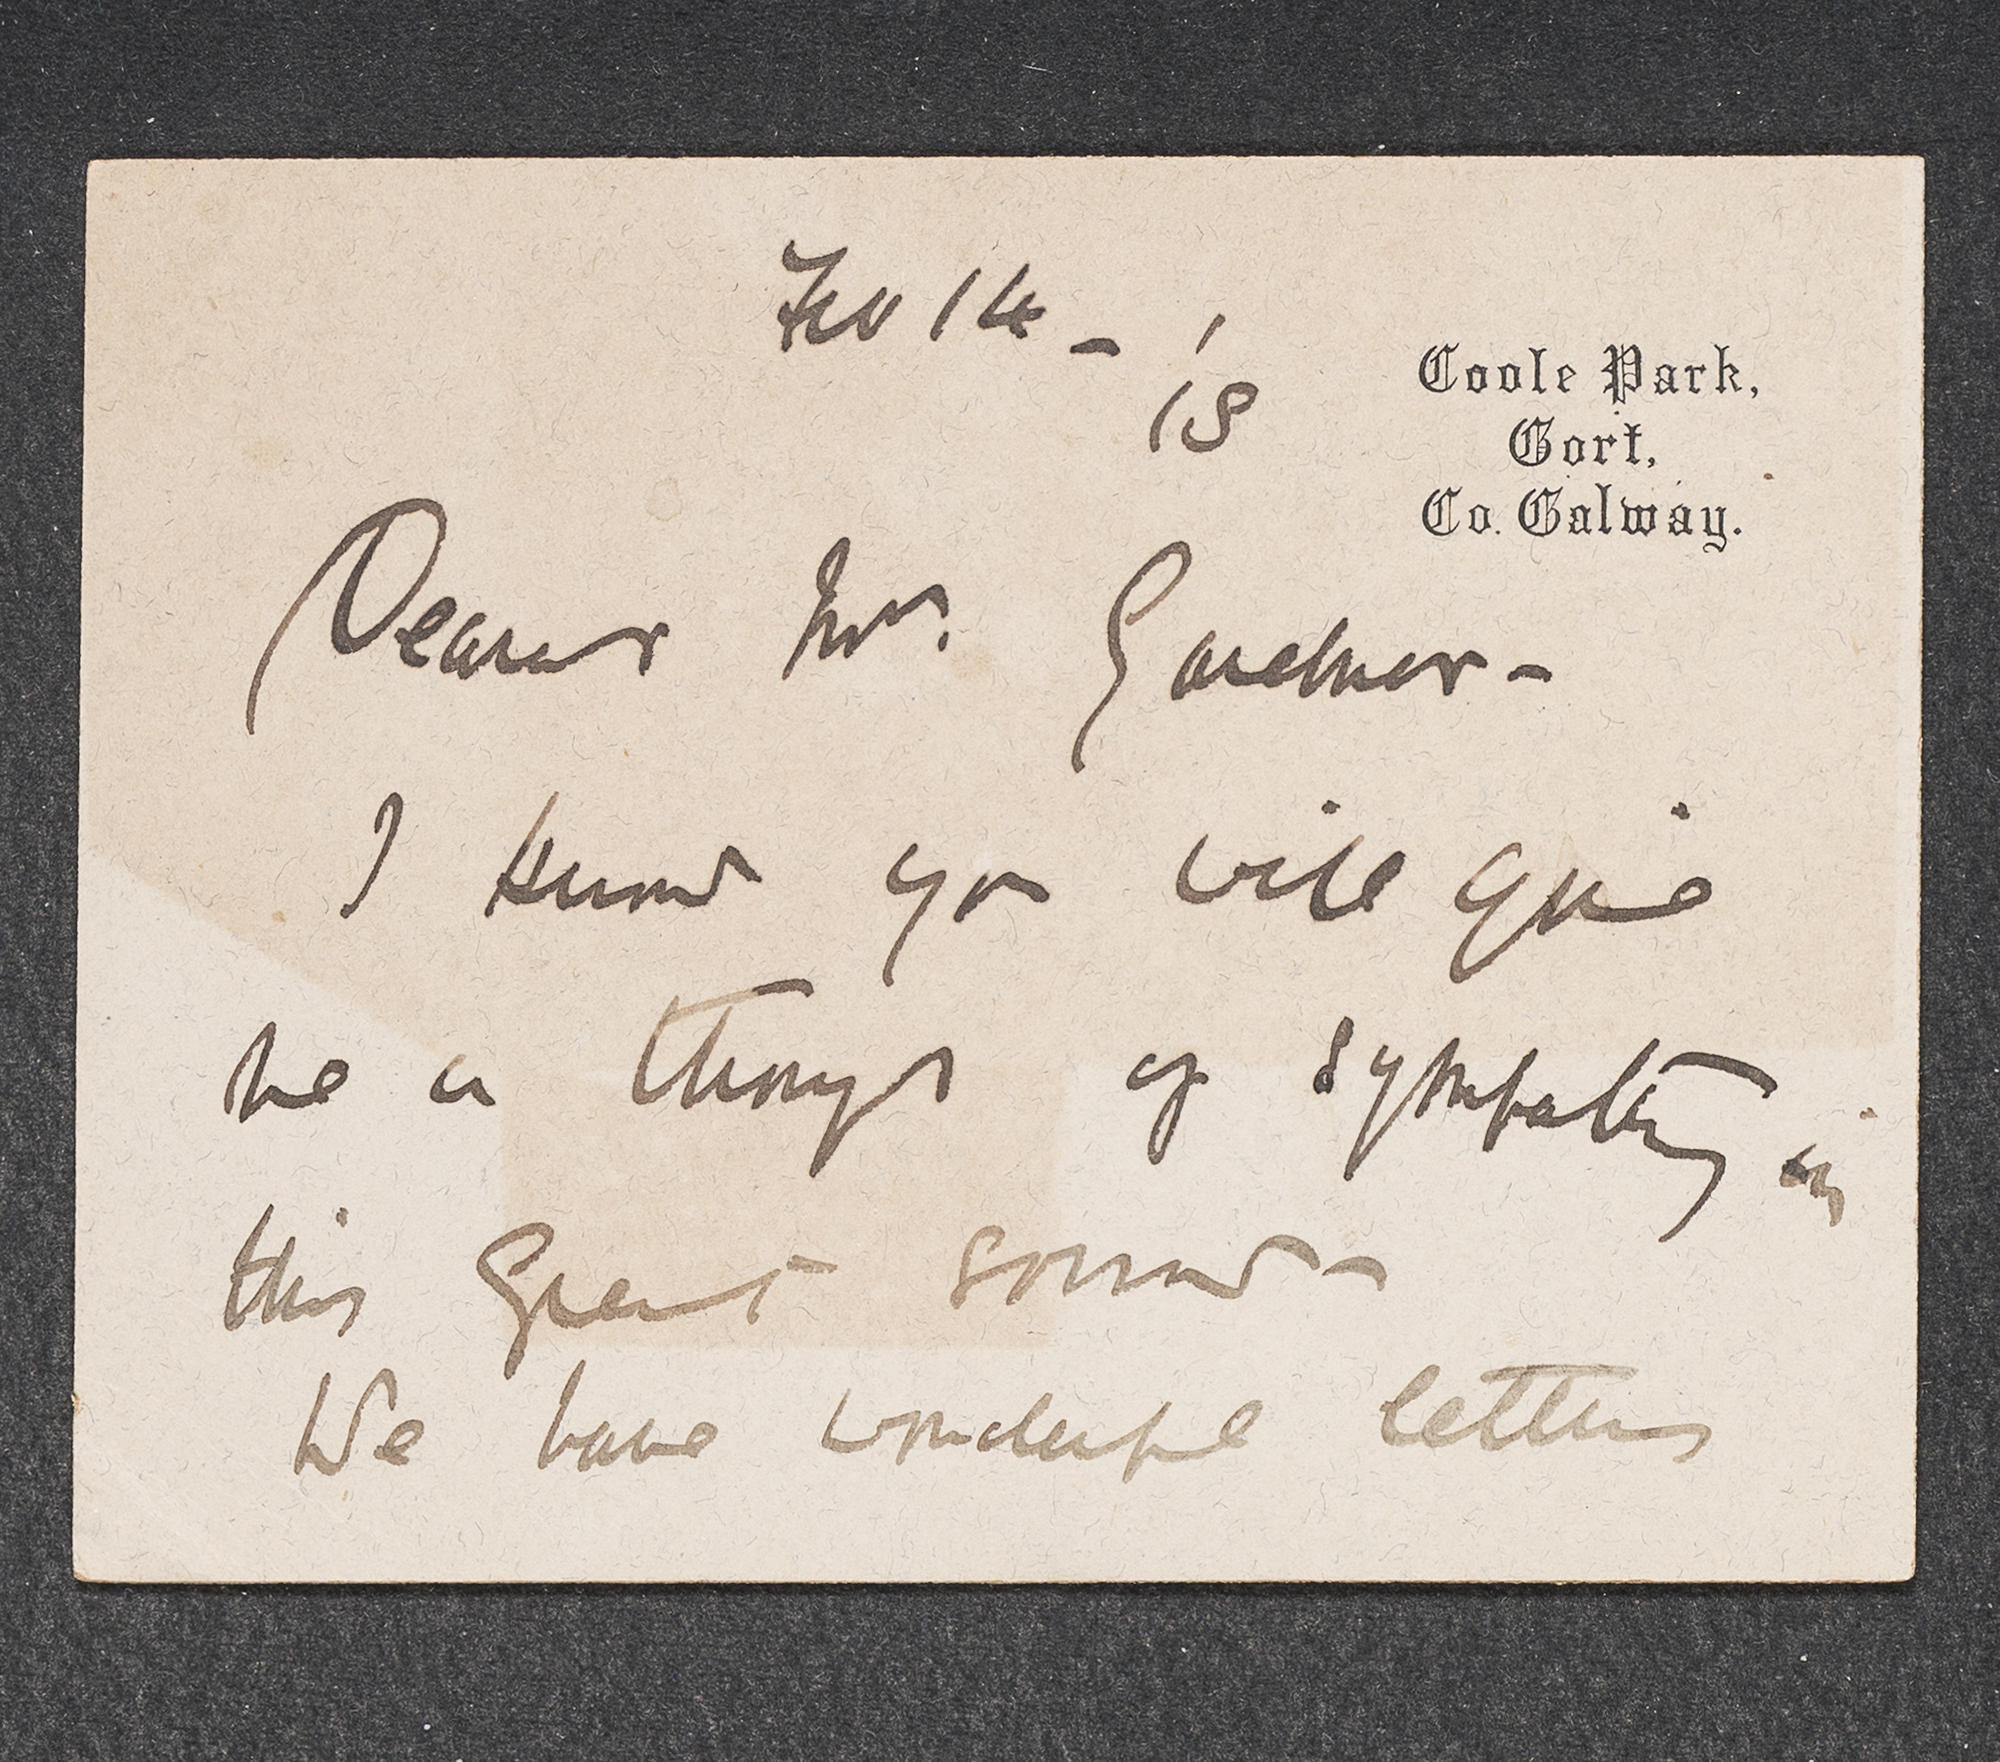 Feb 14 - '18
Coole Park,
Gort,
Co. Galway.
Dearest Mrs. Gardner -
I know you will give
me a thought of sympathy in
this great sorrow -
We have wonderful letters